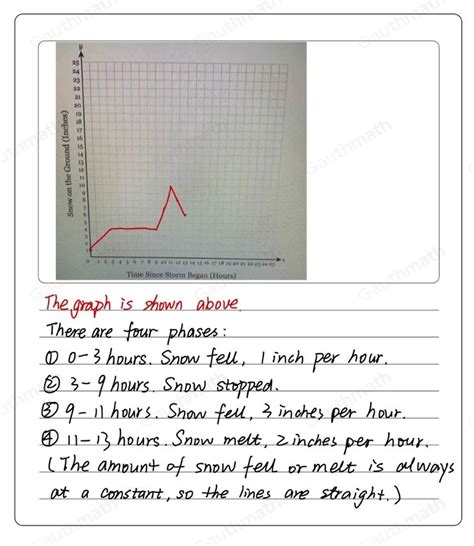 y
25
24
23
22
21
20
19
18
17
16
15
14
13
12
11
10
9
8
7
6
5
4
3
2
1
Snow on the Ground (Inches)
0 1 2 3 4 5 6 7 8 9 10 11 12 13 14 15 16 17 18 19 20 21 22 23 24 25 x
Time Since Storm Began (Hours)
The graph is shown above.
There are four phases:
① 0-3 hours. Snow fell, 1 inch per hour.
② 3-9 hours. Snow stopped.
③ 9-11 hours. Snow fell, 3 inches per hour.
④ 11-13 hours. Snow melt, 2 inches per hour.
(The amount of snow fell or melt is always
at a constant, so the lines are straight.)
Gauthmath
Gauthmath
Gauthmath
Gauthmath